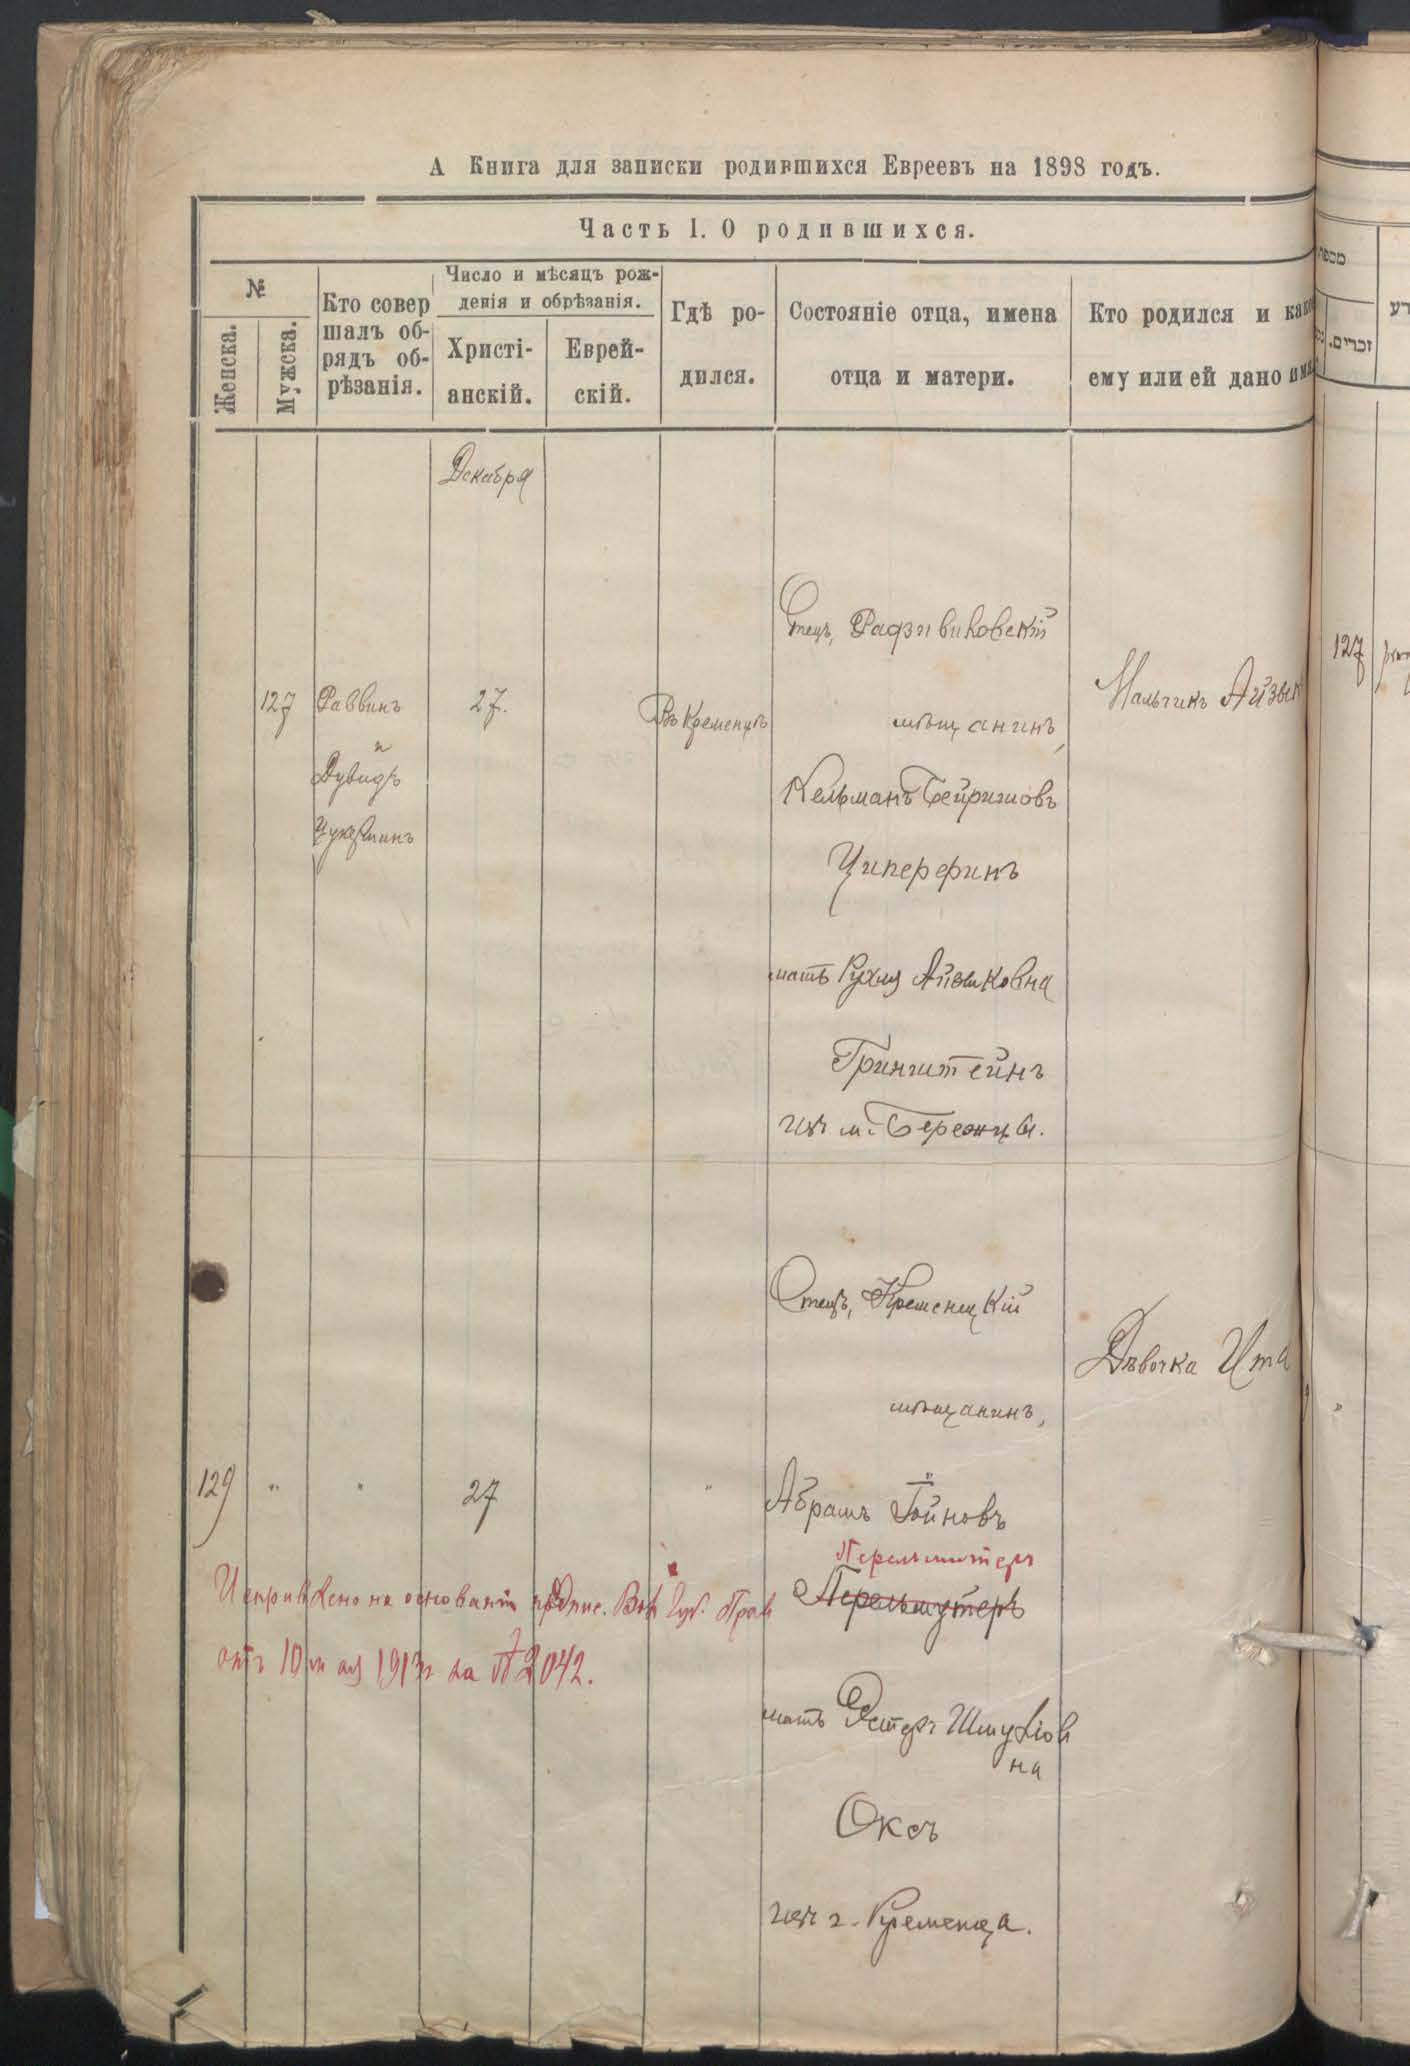 А Книга для записки родившихся Евреевъ на 1898 годъ.
Часть I. О родившихся.
№
Женска.
Мужска.
Кто совер
шалъ об-
рядъ об-
рѣзанія.
Число и мѣсяцъ рож-
денія и обрѣзанія.
Христі-
анскій.
Еврей-
скій.
Гдѣ ро-
дился.
Состояніе отца, имена
отца и матери.
Кто родился и
ему или ей дано
Декабря
127
Раввинъ
и
Дувидъ
27.
Въ Кременцѣ
Отецъ, Радзивиловскій
мѣщанинъ,
Кельманъ
Циперфинъ
мать Рухля Айзиковна
Гринштейнъ
изъ м. Бережцы.
Мальчикъ Айзикъ
129
"
"
27
"
Отецъ, Кременецкій
мѣщанинъ,
Абрамъ
Перельмутеръ
Перельмутеръ
мать Эстеръ Шмуліов
на
Оксъ
изъ г. Кременца.
Дѣвочка Ита
Исправлено на основаніи предпис. Вол. Губ. Прав
отъ 10 мая 1913 г за № 2042.
זכרים.
127
"